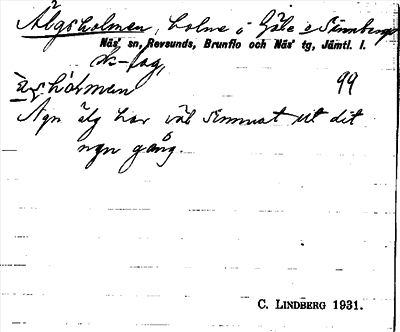 Älgsholmen, holme i Göle o Sunnberge
Näs' sn, Revsunds, Brunflo och Näs' tg, Jämtl. l.
sk-lag,
hólmen 99
Ngn älg har väl simmat ut dit
ngn gång.
C. LINDBERG 1931.